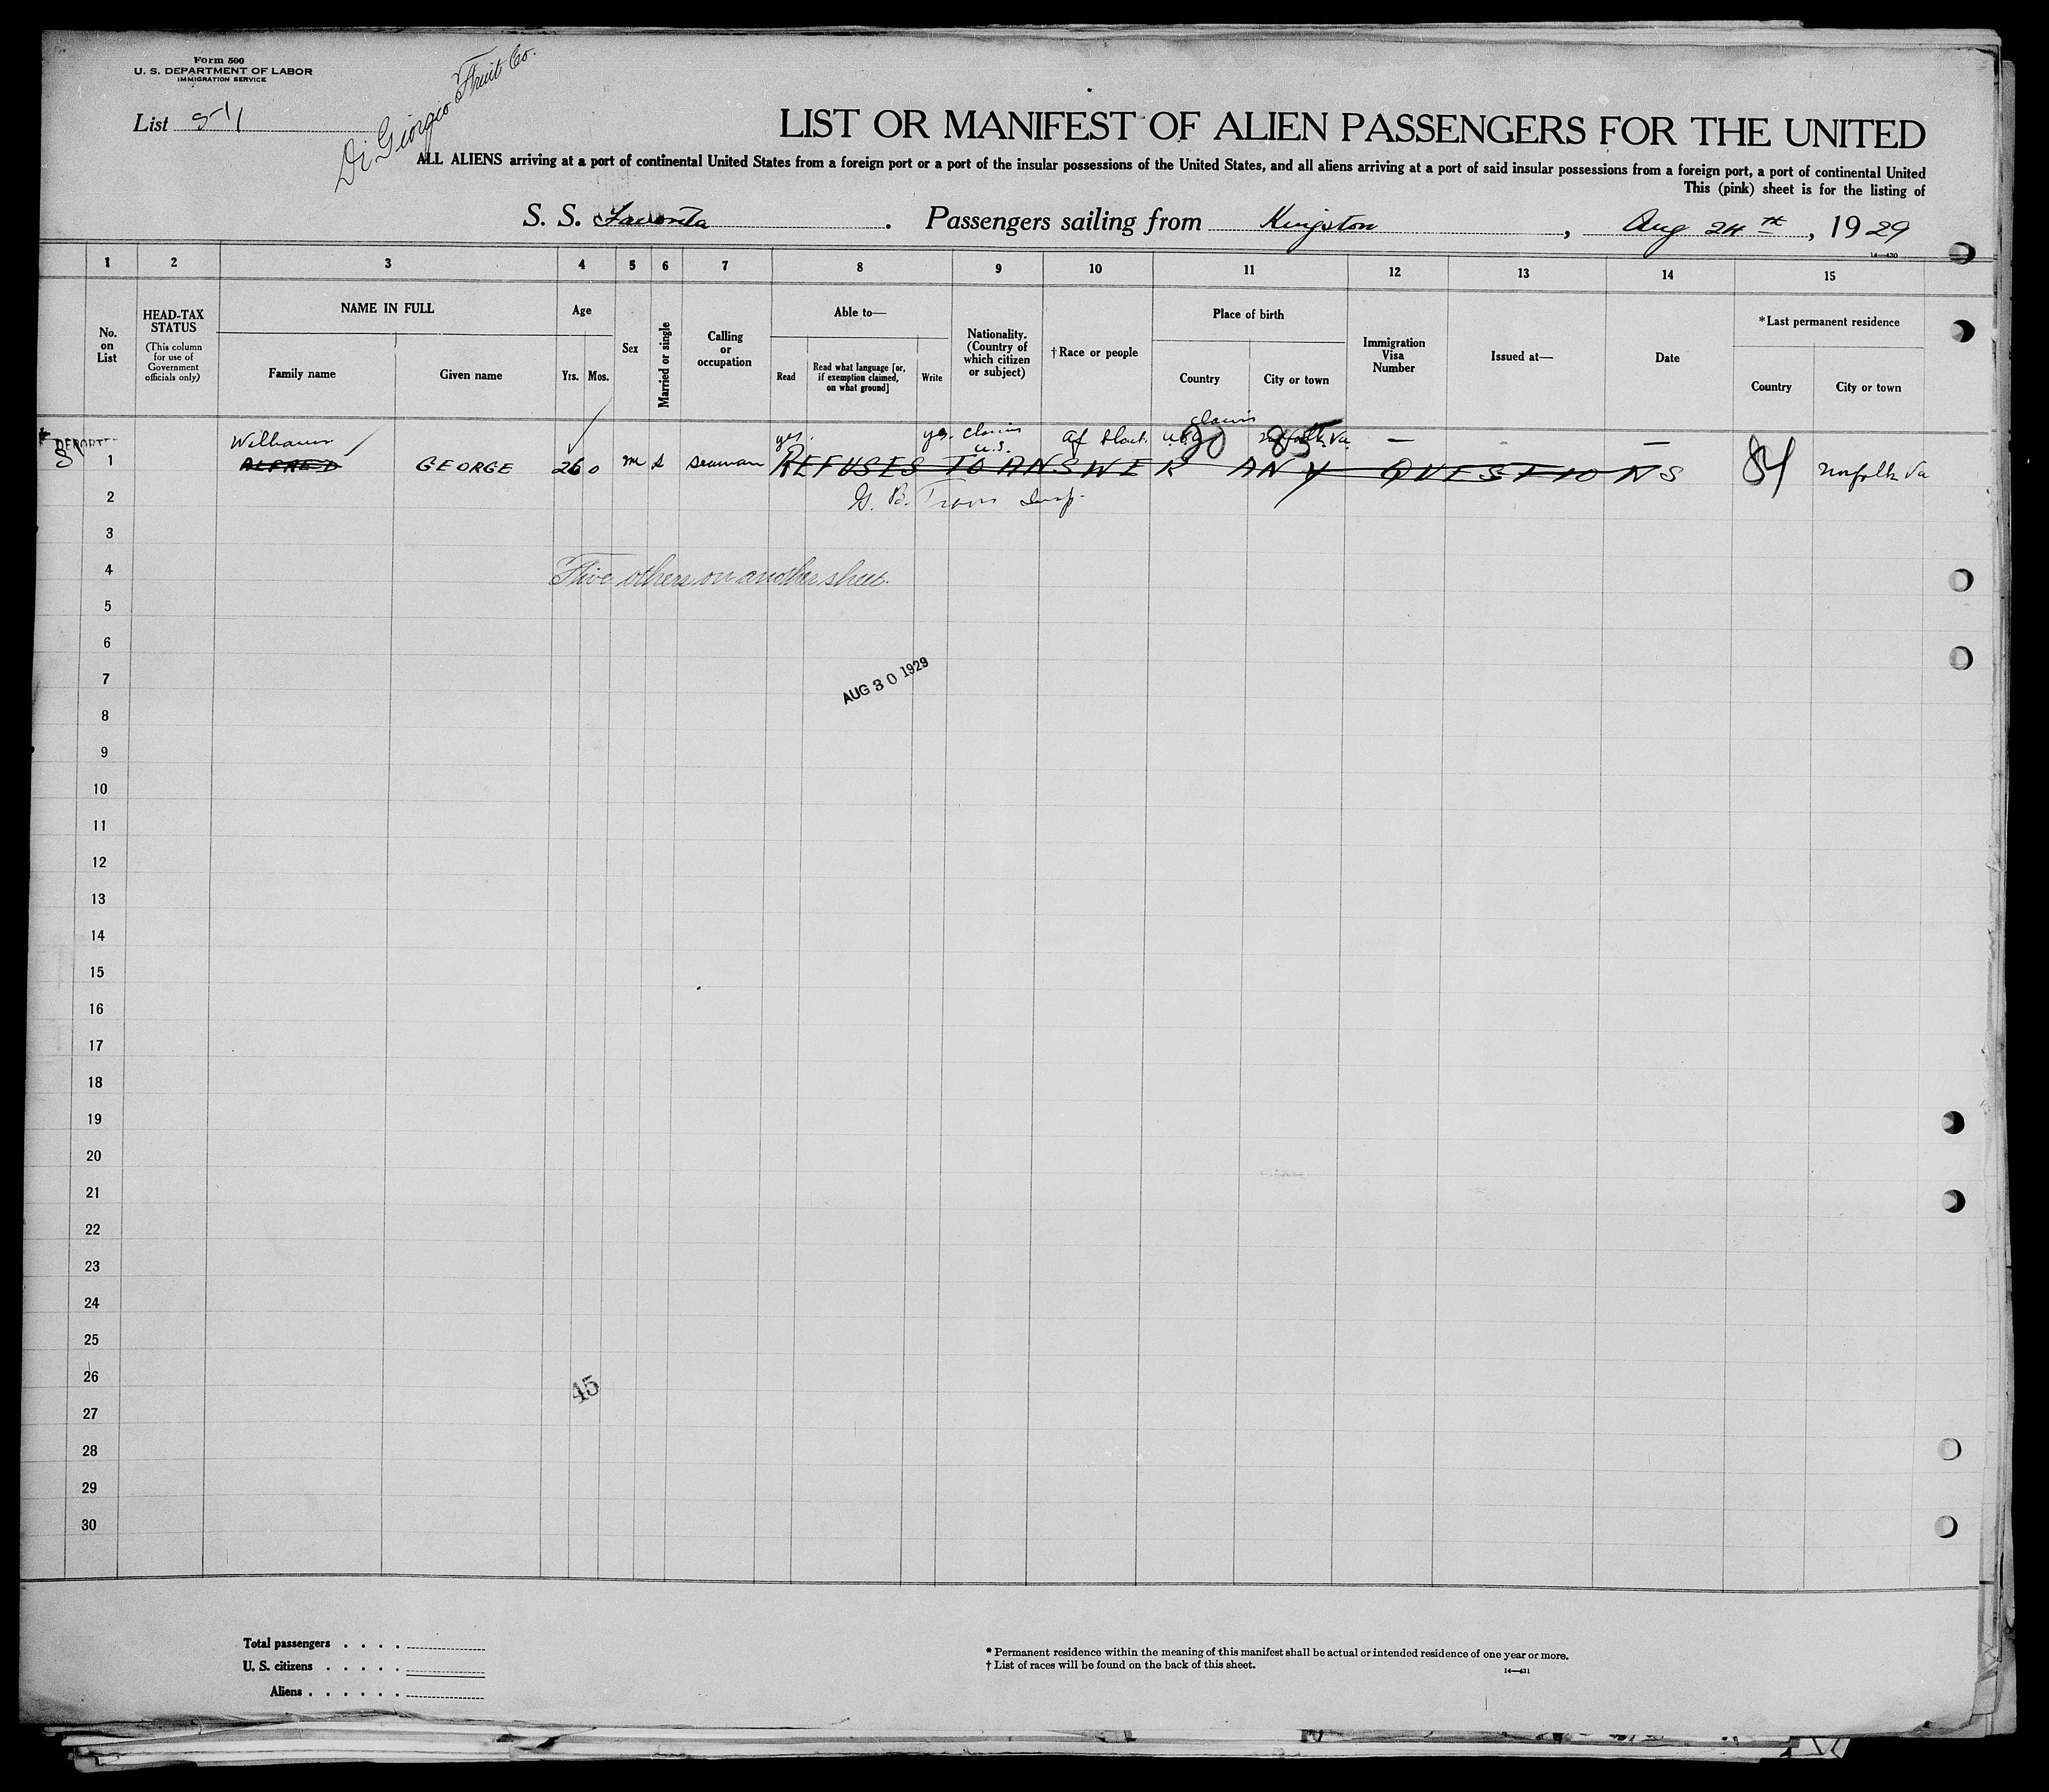 Form 500
U. S. DEPARTMENT OF LABOR
IMMIGRATION SERVICE
Di Giorgio Fruit Co.
List
LIST OR MANIFEST OF ALIEN PASSENGERS FOR THE UNITED
ALL ALIENS arriving at a port of continental United States from a foreign port or a port of the insular possessions of the United States, and all aliens arriving at a port of said insular possessions from a foreign port, a port of continental United
This (pink) sheet is for the listing of
S. S. Favorita. Passengers sailing from Kingston, Aug 24th, 1929
14—430
1 2 3 4 5 6 7 8 9 10 11 12 13 14 15
No. on List
HEAD-TAX STATUS
(This column for use of Government officials only)
NAME IN FULL
Family name
Given name
Age
Yrs.
Mos.
Sex
Married or single
Calling or occupation
Able to—
Read
Read what language [or, if exemption claimed, on what ground]
Write
Nationality. (Country of which citizen or subject)
†Race or people
Place of birth
Country
City or town
Immigration Visa Number
Issued at—
Date
*Last permanent residence
Country
City or town
Williams yes. yes. claims U.S. af black claims U.S.a 90 85 Norfolk Va. — —
1 ALFRED GEORGE 26 0 m s seaman REFUSES TO ANSWER ANY QUESTIONS 84 Norfolk Va
2 G. B. Insp.
3
4 Five others on another sheet.
5
6
7 AUG 30 1929
8
9
10
11
12
13
14
15
16
17
18
19
20
21
22
23
24
25
26 45
27
28
29
30
Total passengers . . . .
U. S. citizens . . . . .
Aliens . . . . . .
* Permanent residence within the meaning of this manifest shall be actual or intended residence of one year or more.
† List of races will be found on the back of this sheet.
14—431